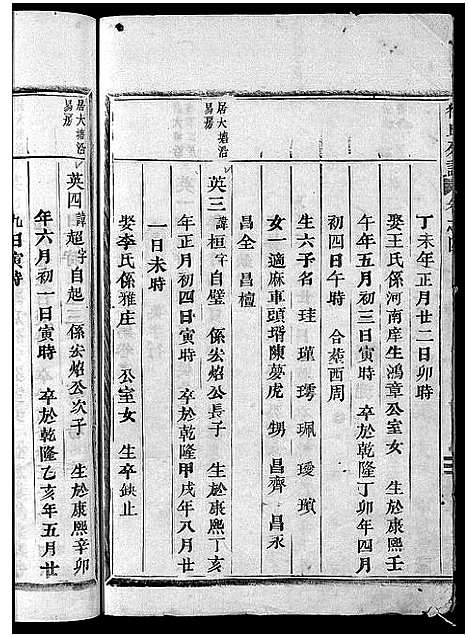 丁未年正月廿二日卯時
娶王氏係河南庠生鴻章公室女　生於康熙壬
午年五月初三日寅時　卒於乾隆丁卯年四月
初四日午時　合葬西周
生六子名　珪　瑾　璓　珮　璦　璸
女一適麻車頭壻陳夢虎　甥　昌齊　昌永
昌全　昌檀
居大塘沿
易房
英三諱桓字自璧　係宏焰公長子　生於康熙丁亥
年正月初四日寅時　卒於乾隆甲戌年八月廿
一日未時
娶李氏係雅庄　公室女　生卒鈌止
居大塘沿
易房
英四諱超字自起三　係宏焰公次子　生於康熙辛卯
年六月初一日寅時　卒於乾隆乙亥年五月廿
九日寅時